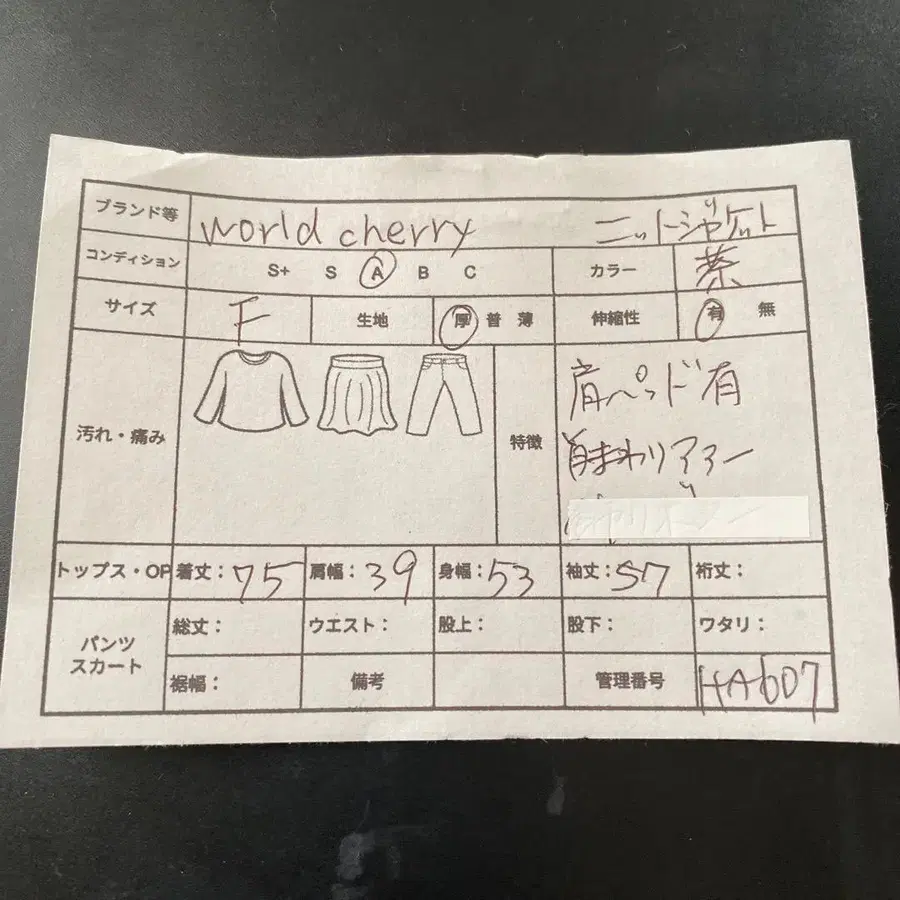 ブランド等 world cherry ニットジャケット
コンディション S+ S A B C カラー 茶
サイズ F 生地 厚 普 薄 伸縮性 有 無
汚れ・痛み 特徴
肩パッド有
首まわりファー
トップス・OP 着丈：75 肩幅：39 身幅：53 袖丈：57 裄丈：
パンツ スカート
総丈： ウエスト： 股上： 股下： ワタリ：
裾幅： 備考 管理番号 HA607